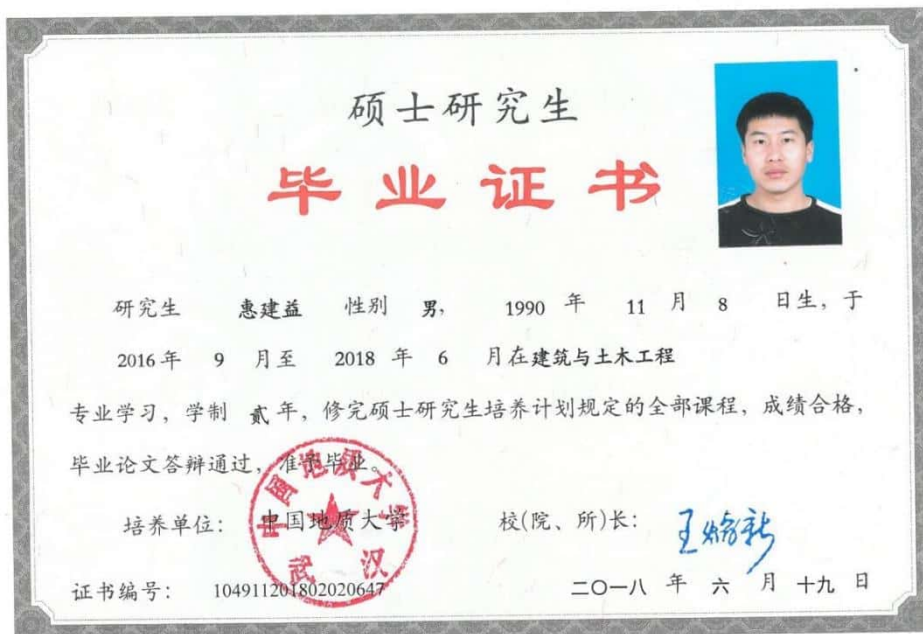 硕士研究生
毕业证书
研究生 惠建益 性别 男, 1990 年 11 月 8 日生, 于
2016年 9 月至 2018 年 6 月在建筑与土木工程
专业学习, 学制 贰年, 修完硕士研究生培养计划规定的全部课程, 成绩合格,
毕业论文答辩通过, 准予毕业。
培养单位: 中国地质大学 校(院、所)长: 王焰新
中国地质大学
武汉
证书编号: 104911201802020647 二〇一八 年 六 月 十九 日